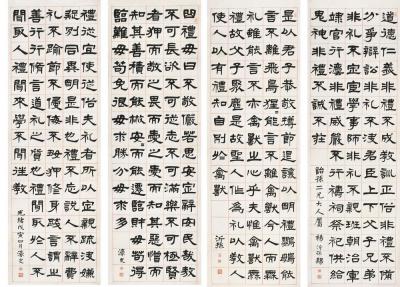 道德仁義非禮不成教訓正俗非禮不備
分爭辯訟非禮不決君臣上下父子兄弟
非禮不定宦學事師非禮不親班朝治軍
涖官行灋非禮威嚴不行禱祠祭祀供給
鬼神非禮不誠不莊
是以君子恭敬撙節退讓以明禮鸚鵡能
言不離飛鳥猩猩能言不離禽獸今人而無
禮雖能言不亦禽獸之心乎夫惟禽獸無
禮故父子聚麀是故聖人作為禮以教人使
人以有禮知自別於禽獸
沂孫
曲禮曰毋不敬儼若思安定辭安民哉敖
不可長欲不可從志不可滿樂不可極賢
者狎而敬之畏而愛之愛而知其惡憎而
知其善積而能散安安而能遷臨財毋苟得
臨難毋苟免很毋求勝分毋求多
濠叟
禮從宜使從俗夫禮者所以定親疏決嫌
疑別同異明是非也禮不妄說人不辭費
禮不踰節不侵侮不好狎脩身踐言謂之
善行行脩言道禮之質也禮聞取於人不
聞取人禮聞來學不聞往教
光緒戊寅四月濠叟